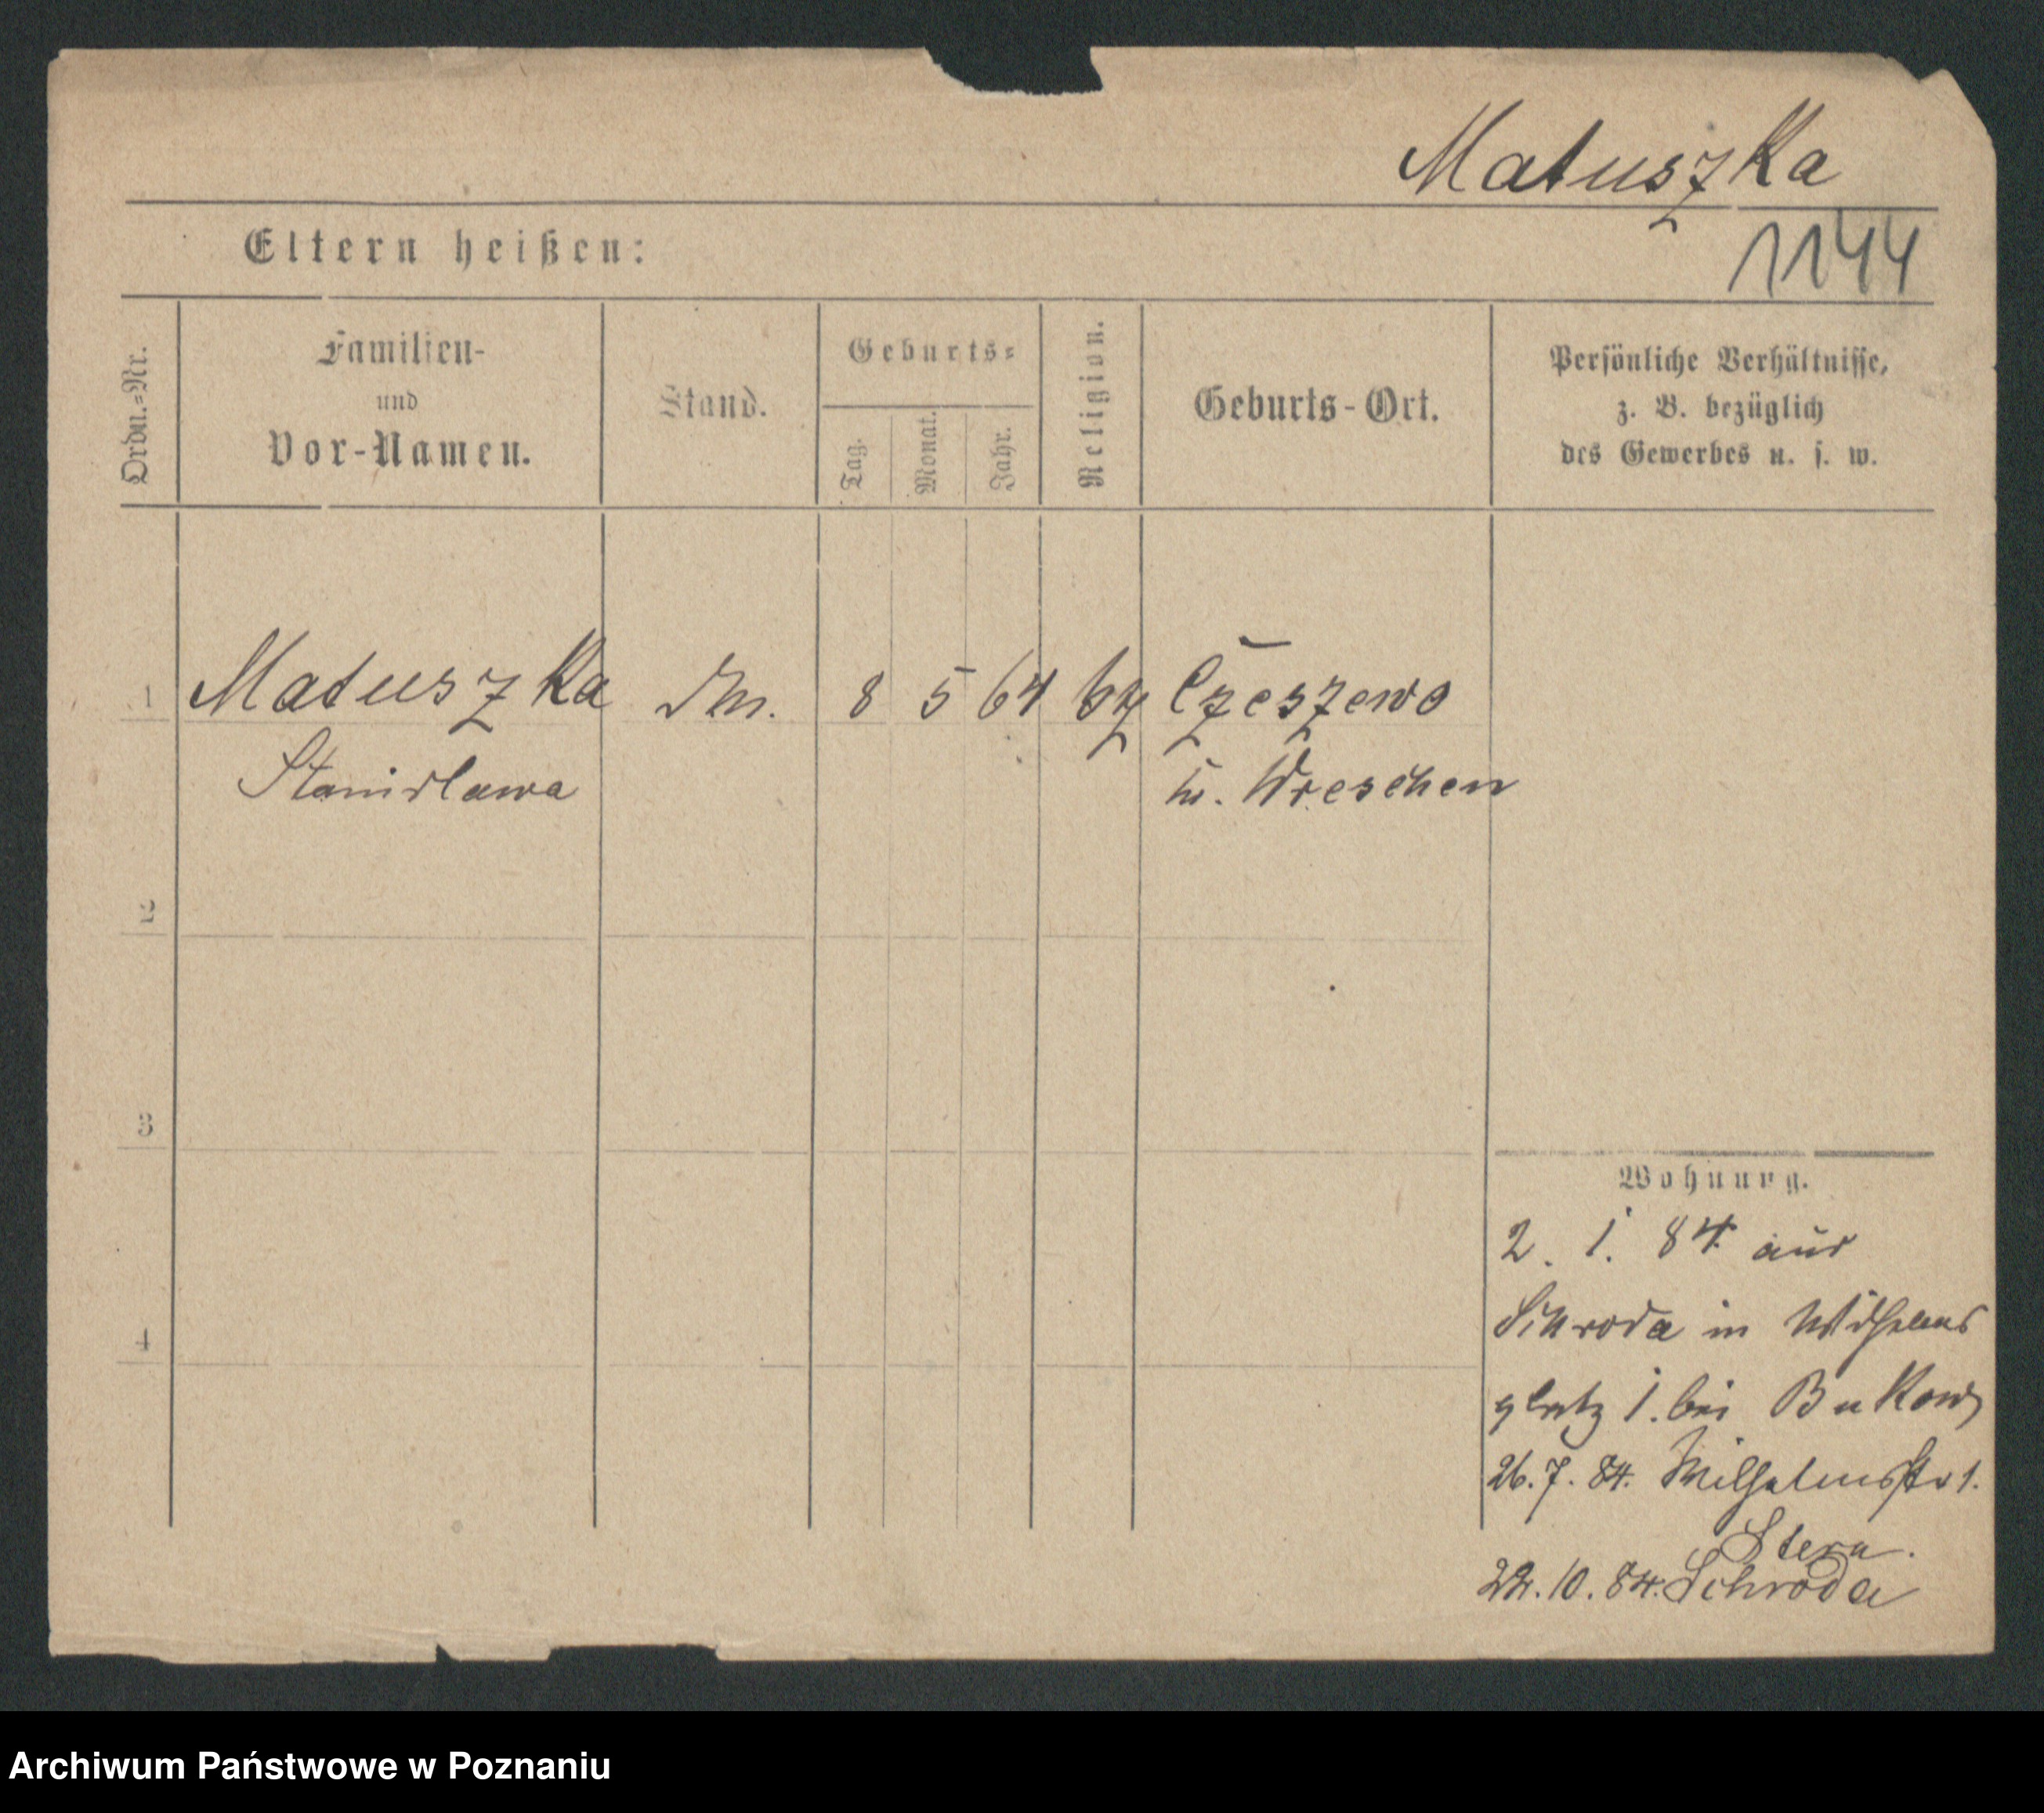 Matuszka
1144
Eltern heißen:
Ordn.=Nr.
Familien-
und
Vor-Namen.
Stand.
Geburts=
Tag.
Monat.
Jahr.
Religion.
Geburts-Ort.
Persönliche Verhältnisse,
z. B. bezüglich
des Gewerbes u. s. w.
1 Matuszka 8 5 64 Czeszewo
Stanislawa Wreschen
2
3
4
Wohnung.
2. 1. 84 aus
Schroda in Wilhelms
platz 1. bei Bukow
26. 7. 84. Wilhelmsstr 1.
Stern.
22. 10. 84. Schroda
Archiwum Państwowe w Poznaniu